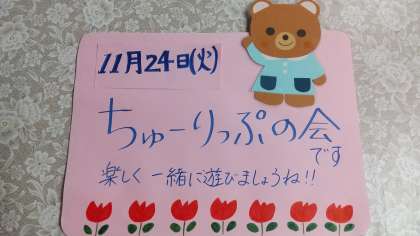 11月24日(火)
ちゅーりっぷの会
です
楽しく一緒に遊びましょうね!!